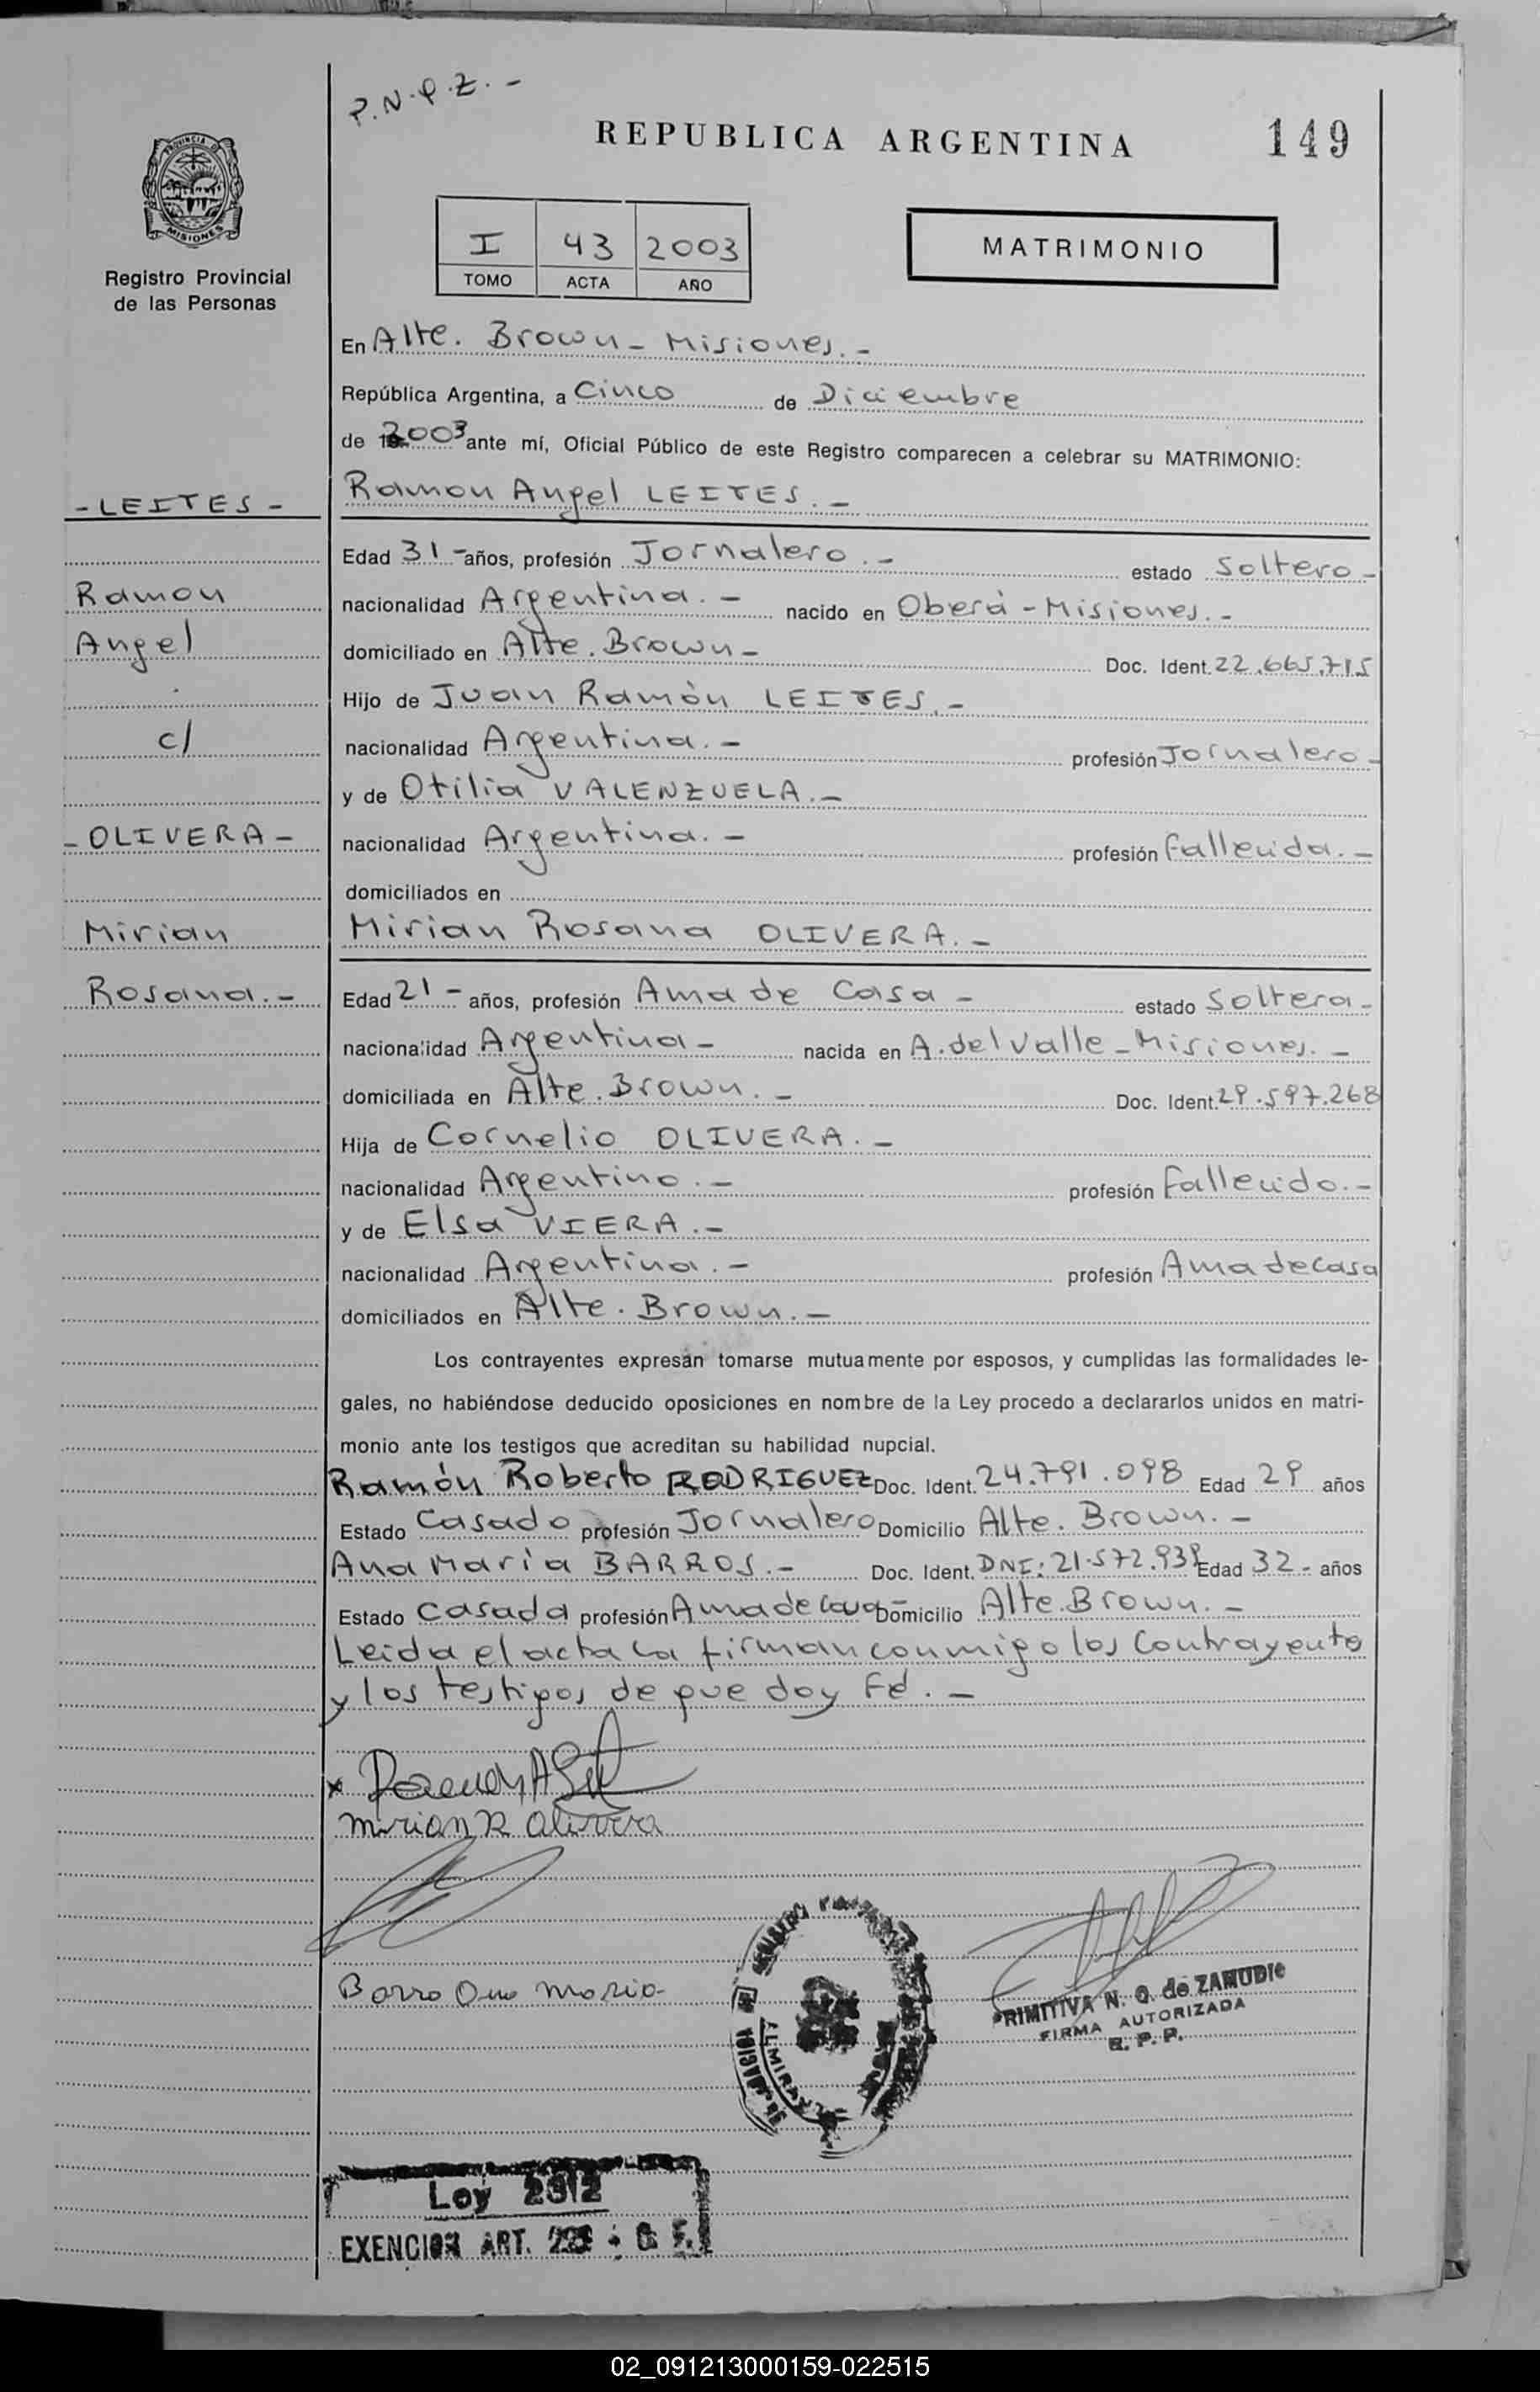 P.N.Q.Z.-
REPUBLICA ARGENTINA
149
PROVINCIA D
MISIONES
Registro Provincial
de las Personas
I 43 2003
TOMO ACTA AÑO
MATRIMONIO
En Alte. Brown - Misiones.-
República Argentina, a Cinco de Diciembre
de 2003 ante mí, Oficial Público de este Registro comparecen a celebrar su MATRIMONIO:
- LEITES -
Ramon Angel LEITES.-
Edad 31- años, profesión Jornalero.- estado Soltero-
Ramon
nacionalidad Argentina.- nacido en Oberà - Misiones.-
Angel
domiciliado en Alte. Brown- Doc. Ident. 22.665.715
Hijo de Juan Ramón LEITES.-
c/
nacionalidad Argentina.- profesión Jornalero-
y de Otilia VALENZUELA.-
- OLIVERA -
nacionalidad Argentina.- profesión Fallecida.-
domiciliados en
Mirian
Mirian Rosana OLIVERA.-
Rosana.-
Edad 21- años, profesión Ama de Casa - estado Soltera-
nacionalidad Argentina- nacida en A. del Valle - Misiones.-
domiciliada en Alte. Brown.- Doc. Ident. 29.597.268
Hija de Cornelio OLIVERA.-
nacionalidad Argentino.- profesión Fallecido.-
y de Elsa VIERA.-
nacionalidad Argentina.- profesión Ama de casa
domiciliados en Alte. Brown.-
Los contrayentes expresan tomarse mutuamente por esposos, y cumplidas las formalidades le-
gales, no habiéndose deducido oposiciones en nombre de la Ley procedo a declararlos unidos en matri-
monio ante los testigos que acreditan su habilidad nupcial.
Ramón Roberto RODRIGUEZ Doc. Ident. 24.791.098 Edad 29 años
Estado Casado profesión Jornalero Domicilio Alte. Brown.-
Ana Maria BARROS.- Doc. Ident. DNI: 21.572.939 Edad 32- años
Estado Casada profesión Ama de Casa Domicilio Alte. Brown.-
Leida el acta la firman conmigo los Contrayente
y los testigos de que doy Fé.-
x Ramon A
Mirian R Olivera
Barro Ana Maria
ALMIRA
PRIMITIVA N. Q. de ZAMUDIO
FIRMA AUTORIZADA
R. P. P.
Ley 2312
EXENCION ART.
02_091213000159-022515